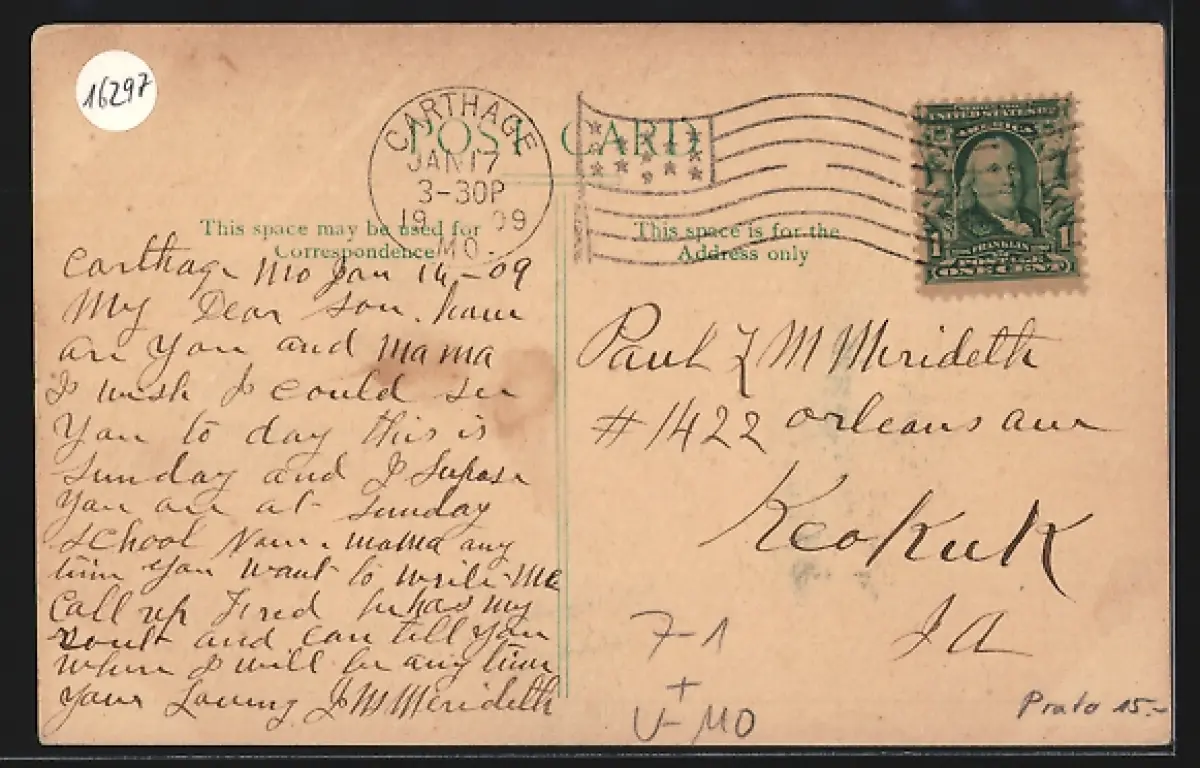 16297
CARTHAGE
JAN 17
3-30P
1909
MO.
POST CARD
UNITED STATES OF
AMERICA
1 FRANKLIN 1
POSTAGE
ONE CENT
This space may be used for
Correspondence
This space is for the
Address only
Carthage Mo Jan 16-09
My Dear son. how
are you and mama
I wish I could see
You to day this is
Sunday and I Supose
you are at Sunday
School Now. mama any
time you want to write me
Call up Fred he has my
rout and can tell you
where I will be any time
your Loving J M Merideth
Paul L M Merideth
#1422 orleans ave
Keokuk
IA
7-1
+
V-MO
Prato 15.-